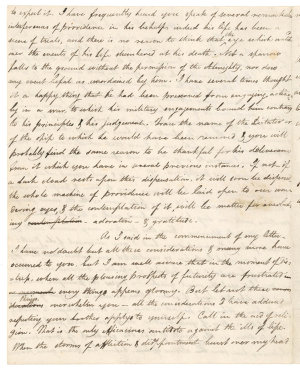 to expect it. I have frequently heard you speak of several remarkable
interferences of providence in his behalf & indeed his life has been
one of trials, and there is no reason to think that the eye which watched
over the events of his life slumbered at his death. Not a sparrow
falls to the ground without the permission of the Almighty, nor does
any event happen unordained by him. I have several times thought
it a happy thing that he had been prevented from engaging
in a war, to which his military engagements would him contrary
to his principles & his judgement. Form the name of the Dictator or
of the ship to which he would have been removed & you will
probably find the same reason to be thankful for his deliverance
from it which you have in several previous instances. If not, if
a dark cloud rests upon this dispensation, it will soon be dispersed
the whole machine of providence will be laid open to our won-
dering eyes, & the contemplation of it will be matter for
my contemplation - adoration - & gratitude.
As I said in the commencement of my letter,
I have no doubt but all these considerations & many more have
occurred to you, but I am well aware that in the moment of
when all the pleasing prospects of futurity are frustrated
every thing appears gloomy. But let not these
things overwhelm you - all the considerations I have adduced
respecting your brother apply to yourself. Call in the aid of reli-
gion. That is the only efficacious antidote against the ills of life.
When the storms of affliction & disappointment burst over my head